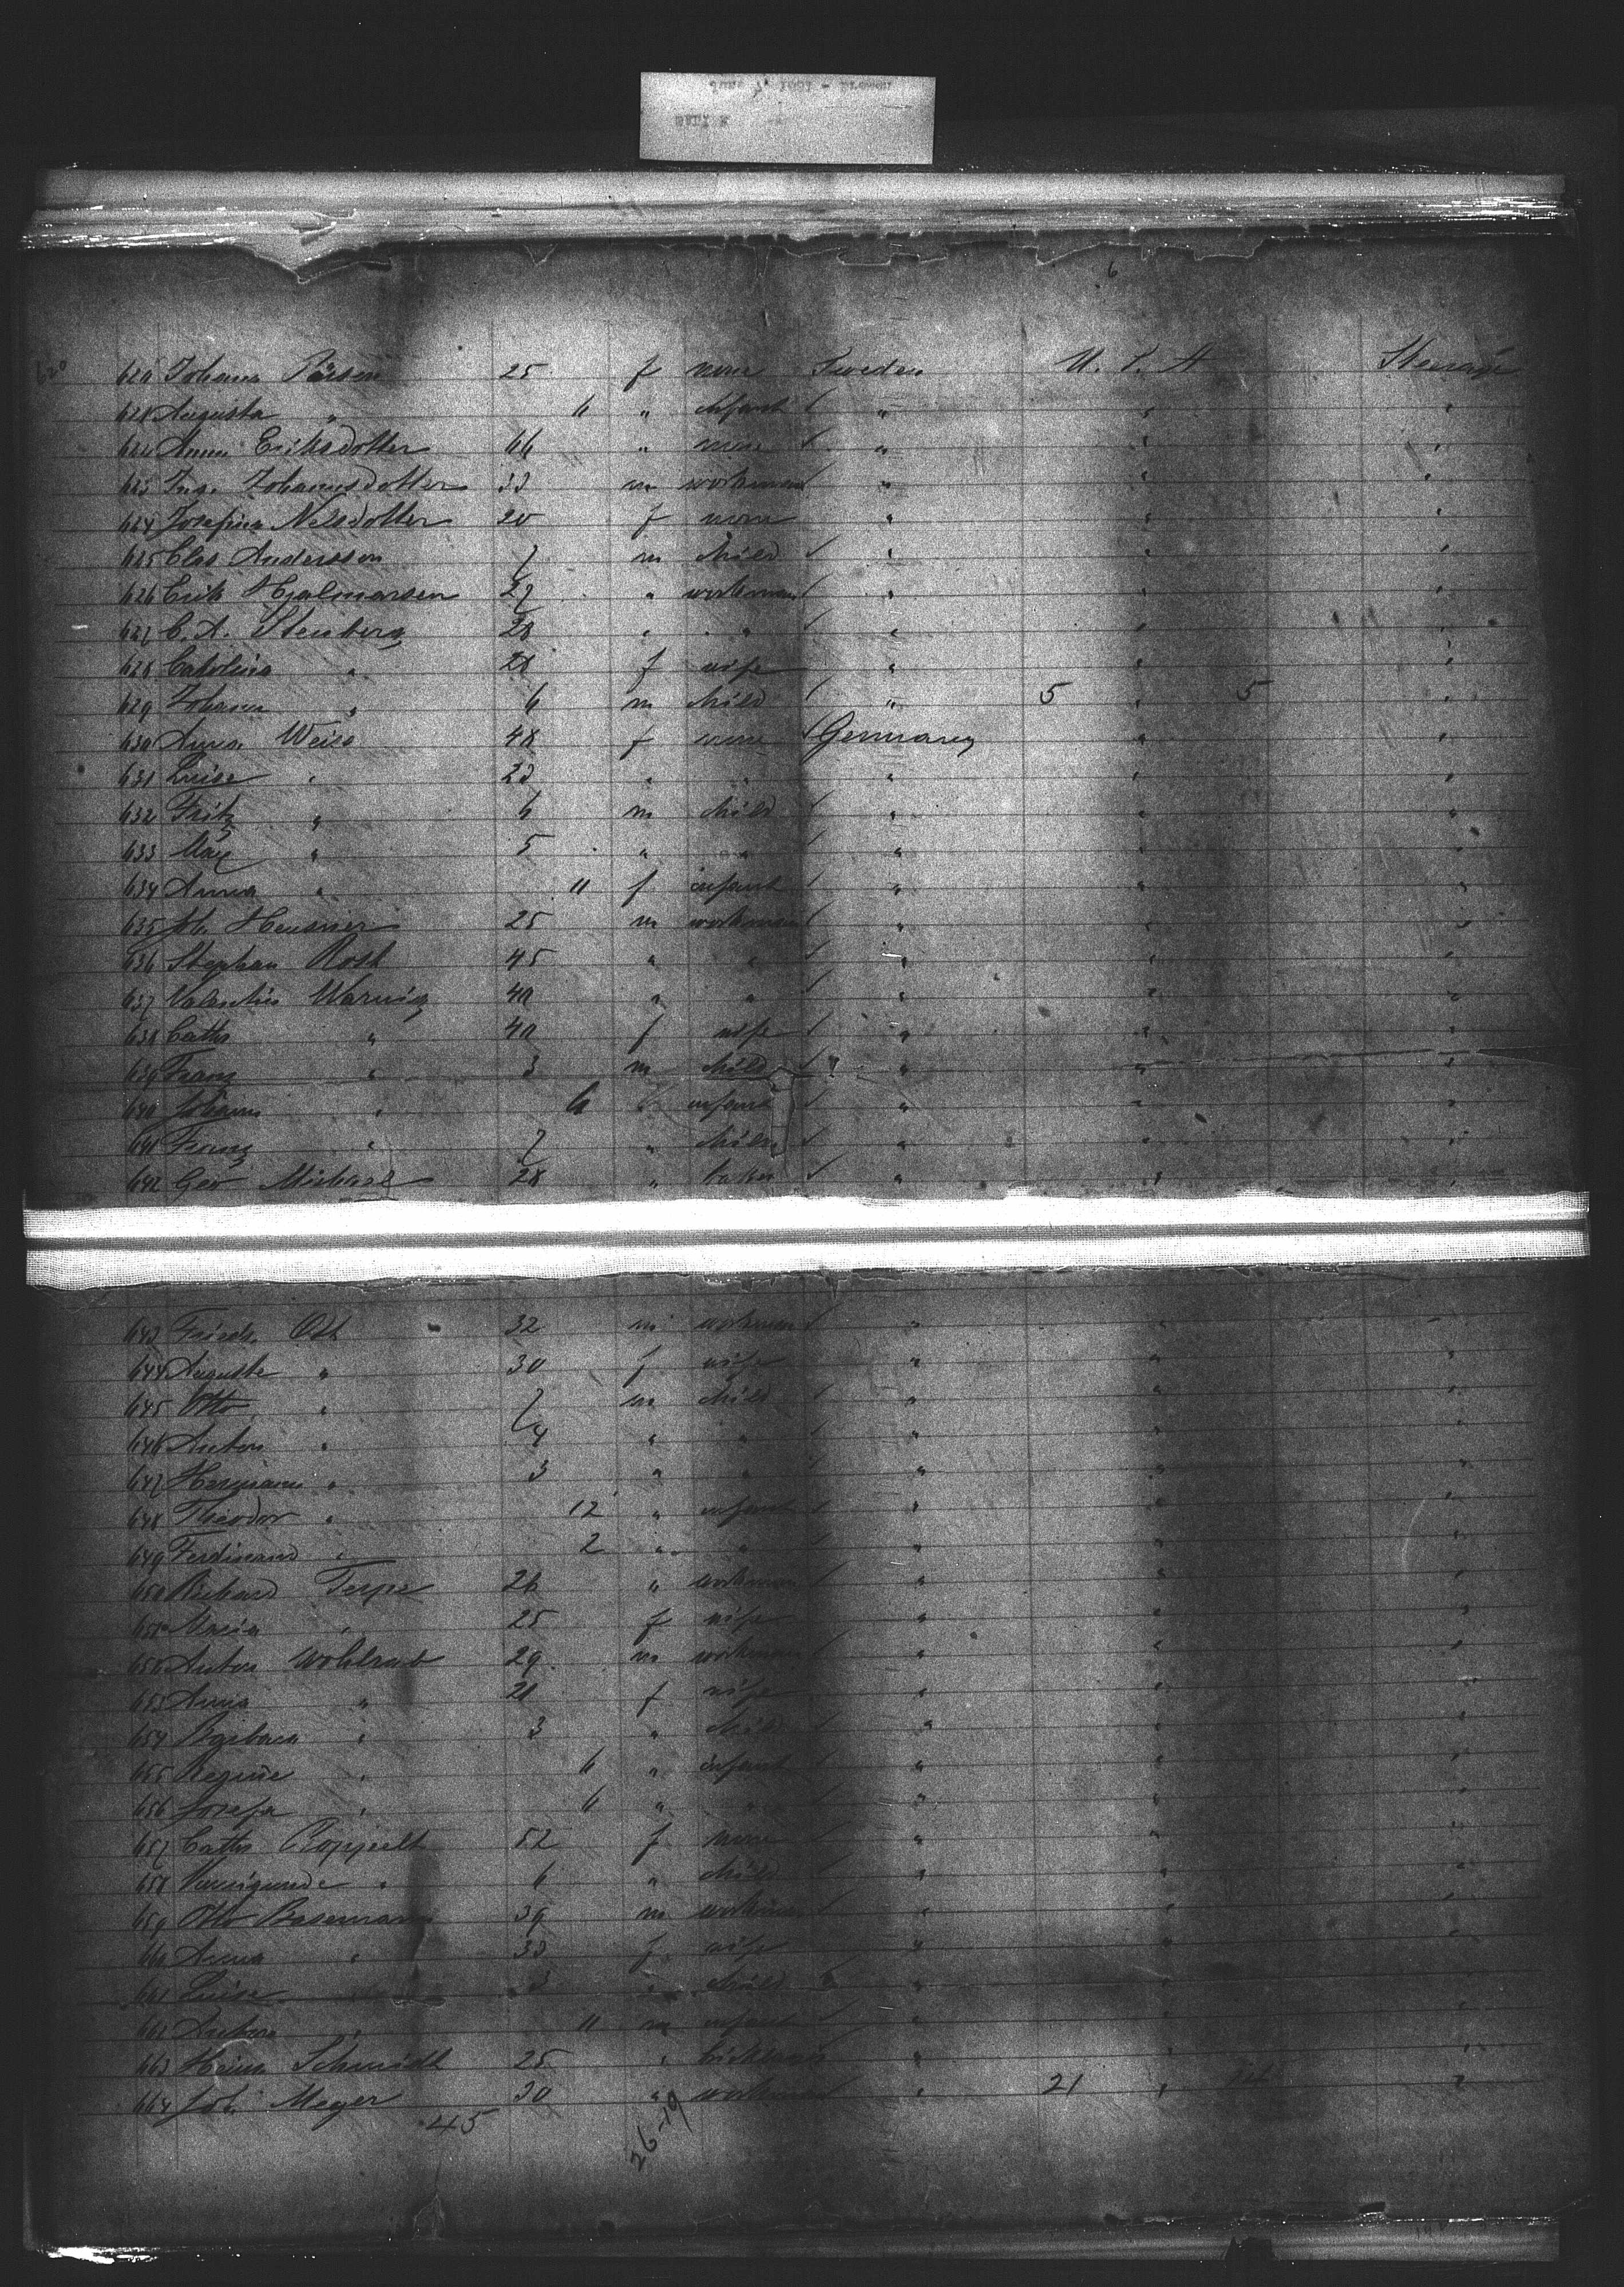 6
620 620 Johana Pärson 25 f none Sweden U. S. A Steerage
621 Augusta " 11 " infant " " "
622 Anna Eriksdotter 66 " none " " "
623 Ing. Johannsdotter 33 m workman " " "
624 Josefina Nelsdotter 20 f none " " "
625 Clas Andersson 7 m child " " "
626 Erik Hjalmarsen 27 " workman " " "
627 C. A. Stenberg 28 " " " " "
628 Carolina " 28 f wife " " "
629 Johann " 6 m child " 5 " 5 "
630 Anna Weiss 48 f none Germany " "
631 Luise " 23 " " " " "
632 Fritz " 6 m child " " "
633 Max " 5 " " " " "
634 Anna " 11 f infant " " "
635 M. Heusner 25 m workman " " "
636 Stephan Rost 45 " " " " "
637 Valentin Warnig 40 " " " " "
638 Cath " 40 f wife " " "
639 Franz " 3 m child " " "
640 Johann " 6 " infant " " "
641 Franz " 7 " child " " "
642 Geo Michael 28 " baker " " "
643 Friedr. Ott 32 m workman " " "
644 Auguste " 30 f wife " " "
645 Otto " 7 m child " " "
646 Anton " 4 " " " " "
647 Hermann " 3 " " " " "
648 Theodor " 12 " infant " " "
649 Ferdinand " 2 " " " " "
650 Richard Terpe 26 " workman " " "
651 Maria " 25 f wife " " "
652 Anton Wohlrab 29 m workman " " "
653 Anna " 21 f wife " " "
654 Barbara " 3 " child " " "
655 Regine " 6 " infant " " "
656 Josefa " 6 " " " " "
657 Cath Roppelt 52 f none " " "
658 Kunigunde " 6 " child " " "
659 Otto Basemann 39 m workman " " "
660 Anna " 33 f wife " " "
661 Luise " 3 " child " " "
662 Anton " 11 m infant " " "
663 Heinr Schmidt 25 " bricklayer " " "
664 Joh. Meyer 30 " workman " 21 " "
45 26-19